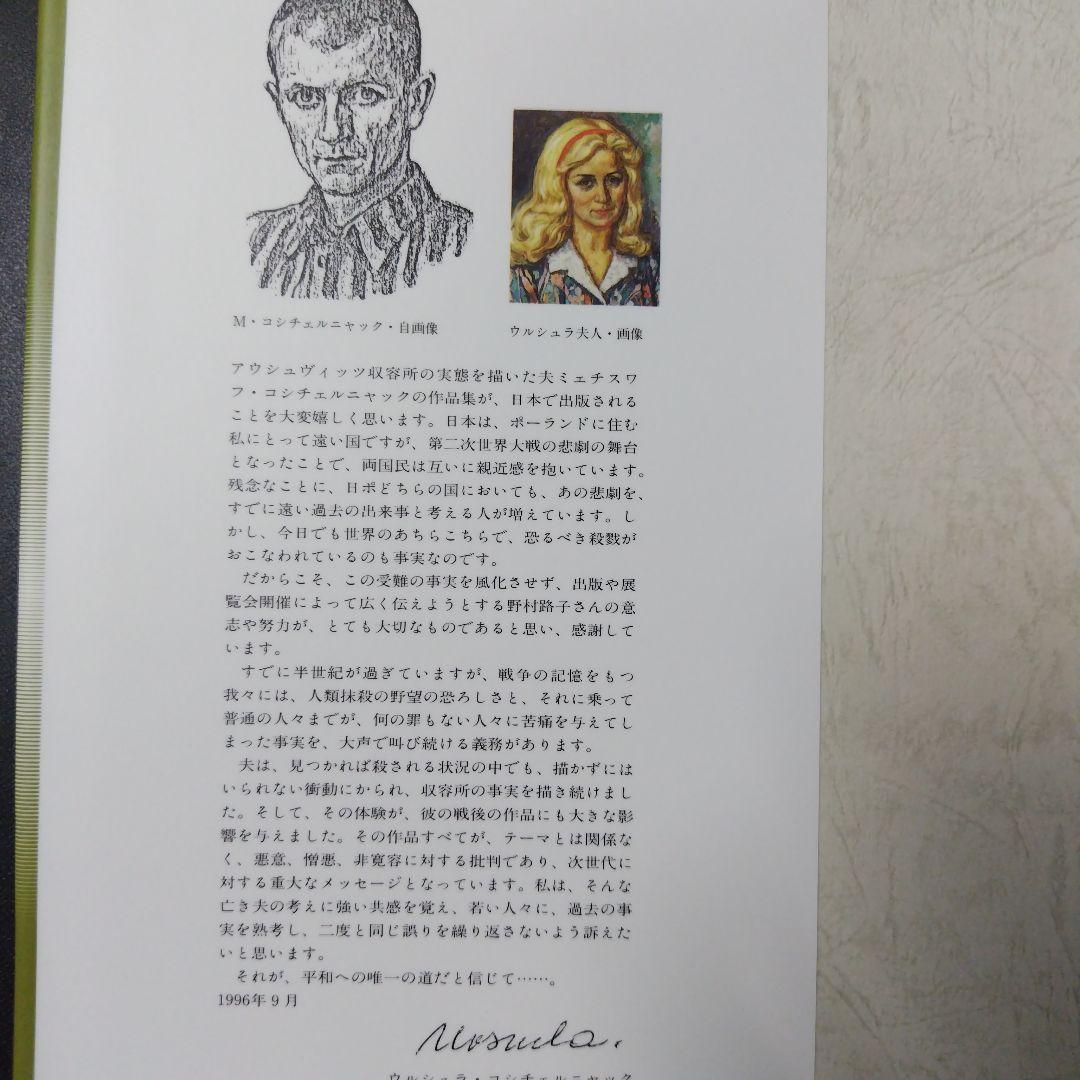 M・コシチェルニャック・自画像
ウルシュラ夫人・画像
アウシュヴィッツ収容所の実態を描いた夫ミェチスワ
フ・コシチェルニャックの作品集が、日本で出版される
ことを大変嬉しく思います。日本は、ポーランドに住む
私にとって遠い国ですが、第二次世界大戦の悲劇の舞台
となったことで、両国民は互いに親近感を抱いています。
残念なことに、日ポどちらの国においても、あの悲劇を、
すでに遠い過去の出来事と考える人が増えています。し
かし、今日でも世界のあちらこちらで、恐るべき殺戮が
おこなわれているのも事実なのです。
だからこそ、この受難の事実を風化させず、出版や展
覧会開催によって広く伝えようとする野村路子さんの意
志や努力が、とても大切なものであると思い、感謝して
います。
すでに半世紀が過ぎていますが、戦争の記憶をもつ
我々には、人類抹殺の野望の恐ろしさと、それに乗って
普通の人々までが、何の罪もない人々に苦痛を与えてし
まった事実を、大声で叫び続ける義務があります。
夫は、見つかれば殺される状況の中でも、描かずには
いられない衝動にかられ、収容所の事実を描き続けまし
た。そして、その体験が、彼の戦後の作品にも大きな影
響を与えました。その作品すべてが、テーマとは関係な
く、悪意、憎悪、非寛容に対する批判であり、次世代に
対する重大なメッセージとなっています。私は、そんな
亡き夫の考えに強い共感を覚え、若い人々に、過去の事
実を熟考し、二度と同じ誤りを繰り返さないよう訴えた
いと思います。
それが、平和への唯一の道だと信じて……。
1996年9月
ウルシュラ・コシチェルニャック